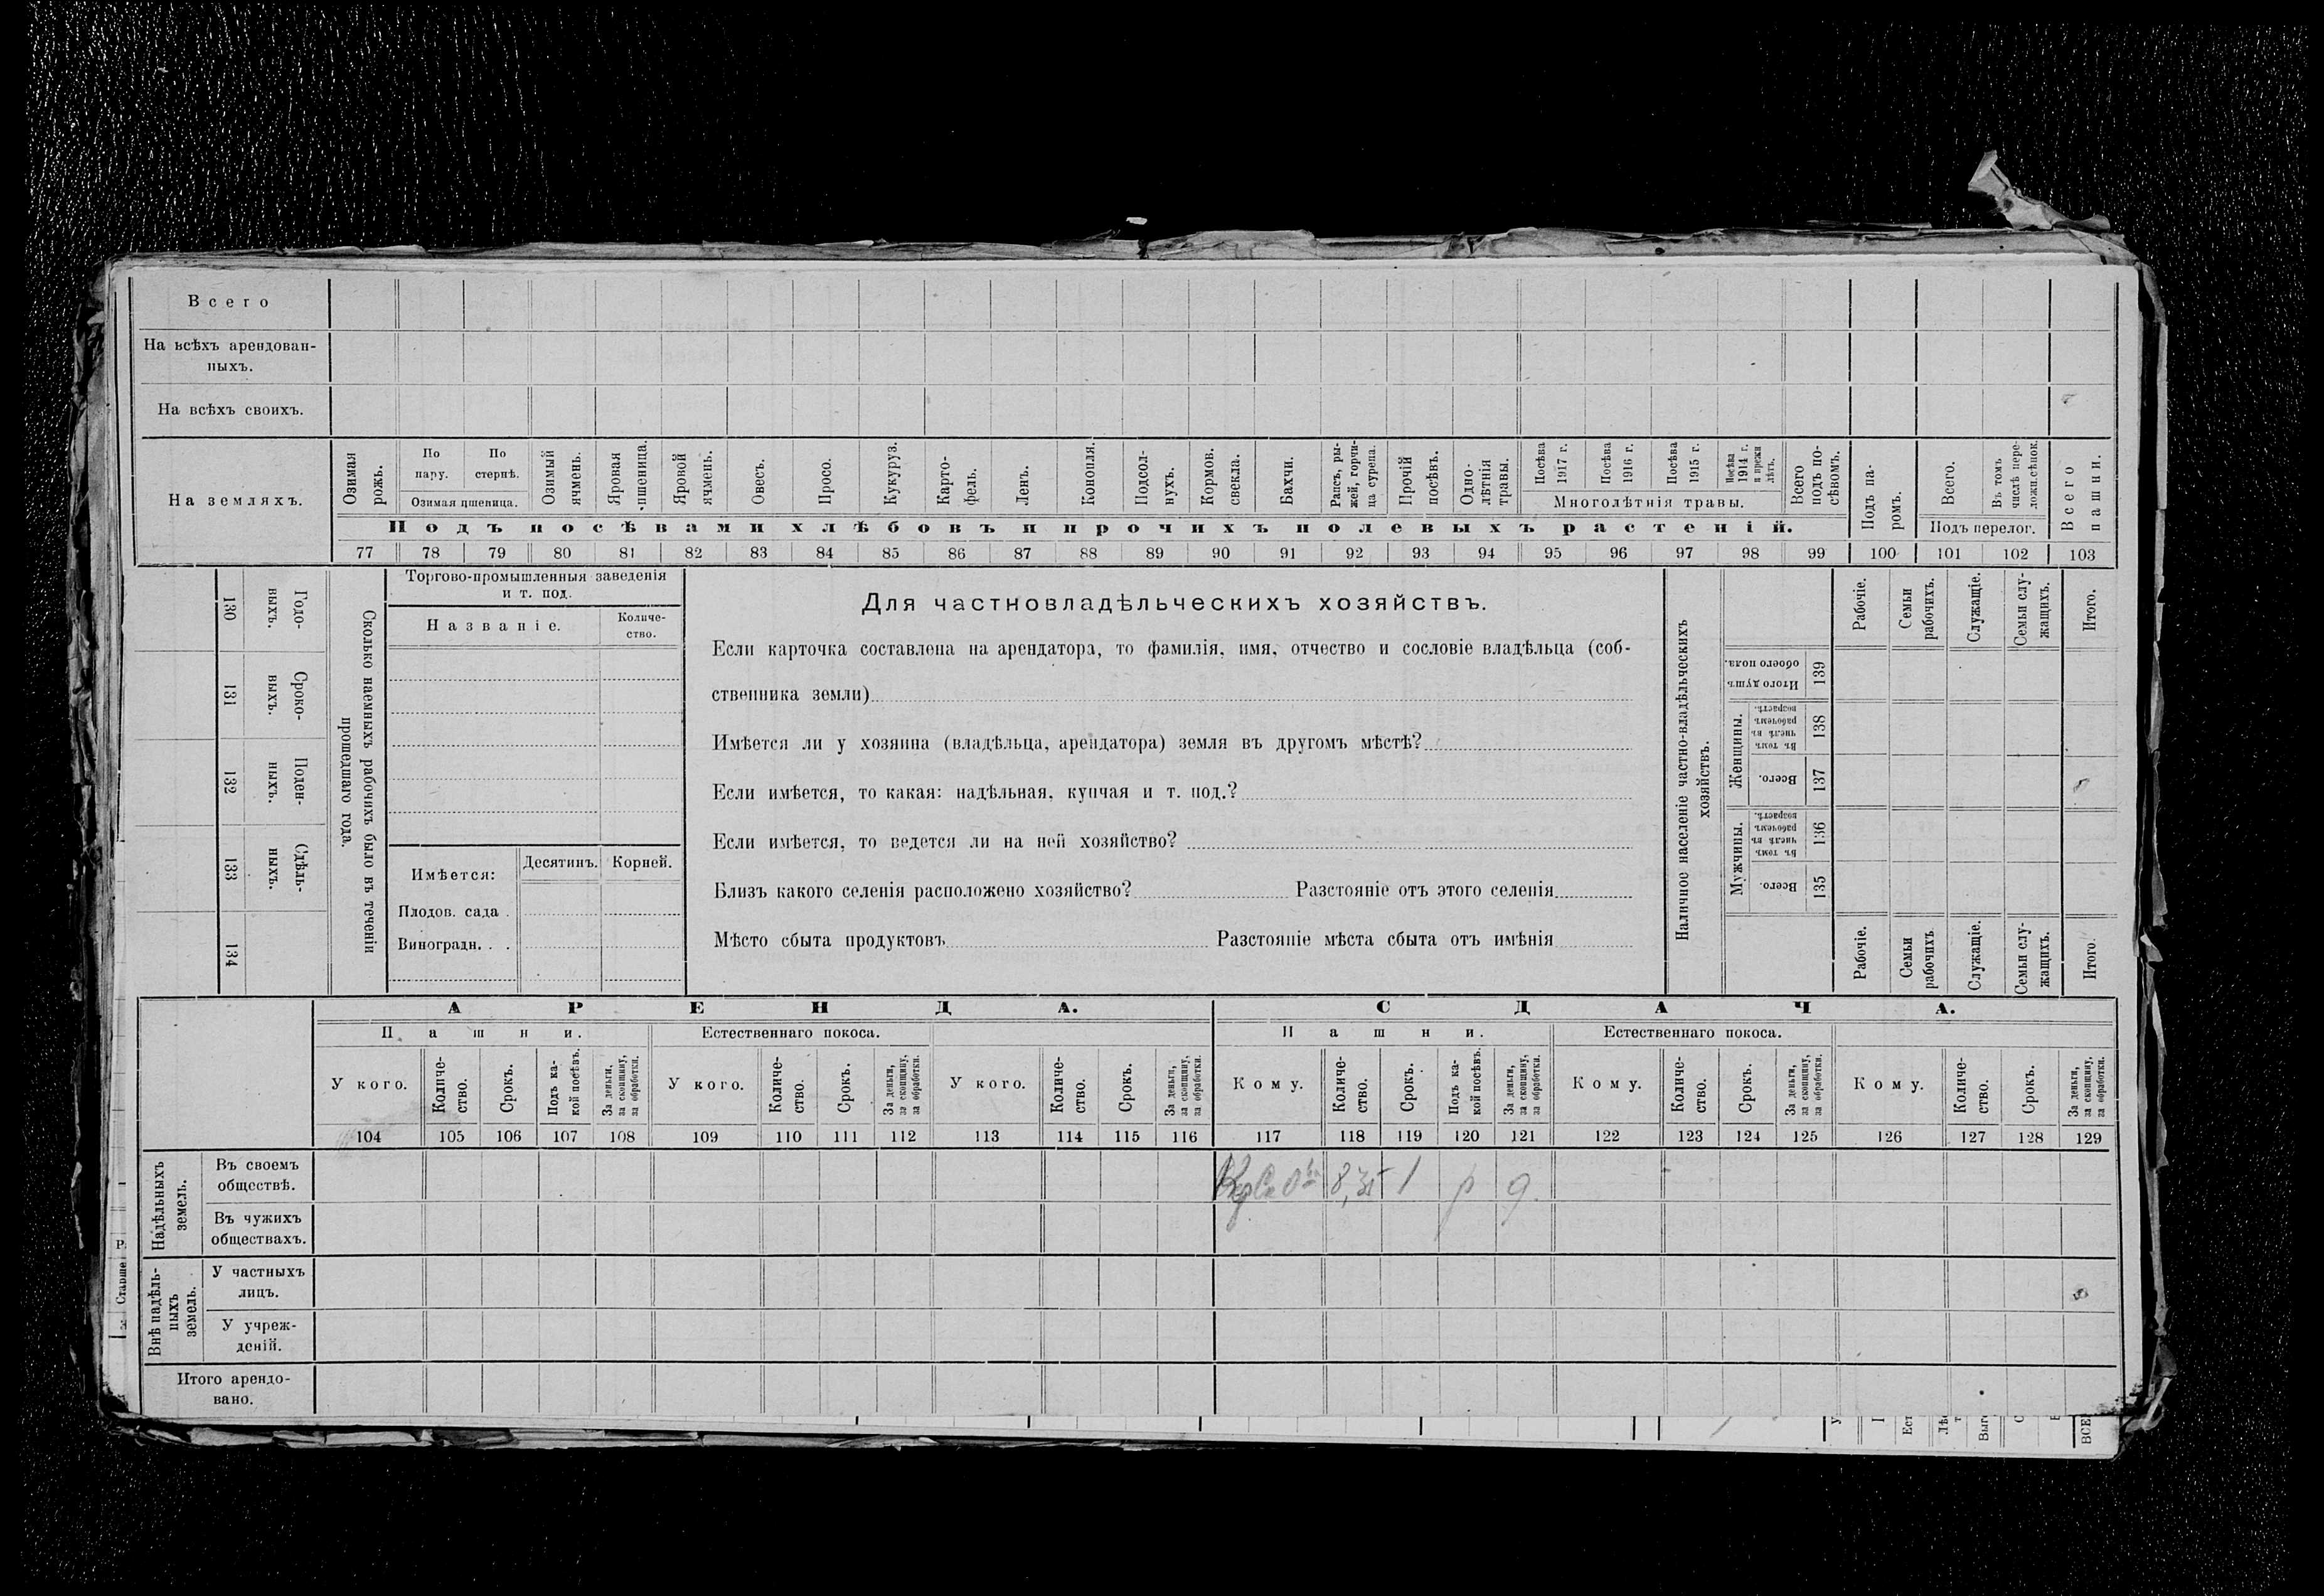 Всего
На всѣхъ арендован-
ныхъ.
На всѣхъ своихъ.
На земляхъ.
Озимая рожь.
По пару.
По стернѣ.
Озимая пшеница.
Озимый ячмень.
Яровая пшеница.
Яровой ячмень.
Овесъ.
Просо.
Кукуруз.
Карто-
фель.
Ленъ.
Конопля.
Подсол-
нухъ.
Кормов.
свекла.
Бахчи.
Рапсъ, ры-
жей, горчи-
ца сурепа.
Прочій
посѣвъ.
Одно-
лѣтнія
травы.
Посѣва
1917 г.
Посѣва
1916 г.
Посѣва
1915 г.
Посѣва
1914 г.
и прежн
лѣтъ.
Многолѣтнія травы.
Всего
подъ по-
сѣвомъ.
Подъ па-
ромъ.
Всего.
Въ томъ
числѣ пере-
ложн.сѣнок.
Подъ перелог.
Всего
пашни.
Подъ посѣвами хлѣбовъ и прочихъ полевыхъ растеній.
77 78 79 80 81 82 83 84 85 86 87 88 89 90 91 92 93 94 95 96 97 98 99 100 101 102 103
130
Годо-
выхъ.
131
Сроко-
выхъ.
132
Поден-
ныхъ.
133
Сдѣль-
ныхъ.
134
Сколько наемныхъ рабочихъ было въ теченіи
прошедшаго года.
Торгово-промышленныя заведенія
и т. под.
Названіе.
Количе-
ство.
Имѣется:
Десятинъ.
Корней.
Плодов. сада .
Виноградн. . .
Для частновладѣльческихъ хозяйствъ.
Если карточка составлена на арендатора, то фамилія, имя, отчество и сословіе владѣльца (соб-
ственника земли)
Имѣется ли у хозяина (владѣльца, арендатора) земля въ другомъ мѣстѣ?
Если имѣется, то какая: надѣльная, купчая и т. под.?
Если имѣется, то ведется ли на ней хозяйство?
Близъ какого селенія расположено хозяйство? Разстояніе отъ этого селенія
Мѣсто сбыта продуктовъ Разстояніе мѣста сбыта отъ имѣнія
Наличное населеніе частно-владѣльческихъ
хозяйствъ.
Рабочіе.
Семьи
рабочихъ.
Служащіе.
Семьи слу-
жащихъ.
Итого.
Итого душъ
обоего пола.
139
Женщины.
Въ томъ
числѣ въ
рабочемъ
возрастѣ.
138
Всего.
137
Мужчины.
Въ томъ
числѣ въ
рабочемъ
возрастѣ.
136
Всего.
135
Рабочіе.
Семьи
рабочихъ
Служащіе.
Семьи слу-
жащихъ.
Итого.
АРЕНДА.
СДАЧА.
Пашни.
Естественнаго покоса.
Пашни.
Естественнаго покоса.
У кого.
Количе-
ство.
Срокъ.
Подъ ка-
кой посѣвъ.
За деньги,
за скопщину,
за обработки.
У кого.
Количе-
ство.
Срокъ.
За деньги,
за скопщину,
за обработки.
У кого.
Количе-
ство.
Срокъ.
За деньги,
за скопщину,
за обработки.
Кому.
Количе-
ство.
Срокъ.
Подъ ка-
кой посѣвъ.
За деньги,
за скопщину,
за обработки.
Кому.
Количе-
ство.
Срокъ.
За деньги,
за скопщину,
за обработки.
Кому.
Количе-
ство.
Срокъ.
За деньги,
за скопщину,
за обработки.
104 105 106 107 108 109 110 111 112 113 114 115 116 117 118 119 120 121 122 123 124 125 126 127 128 129
Надѣльныхъ
земель.
Въ своемъ
обществѣ.
1 р д.
Въ чужихъ
обществахъ.
Внѣ надѣль-
ныхъ
земель.
У частныхъ
лицъ.
У учреж-
деній.
Итого арендо-
вано.